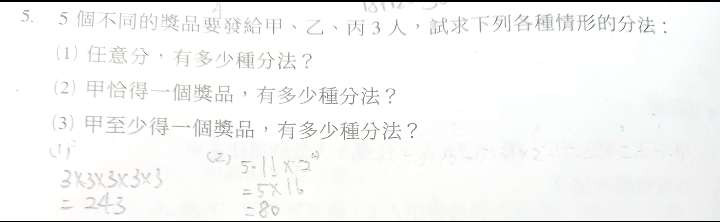 5. 5個不同的獎品要發給甲、乙、丙3人，試求下列各種情形的分法：
(1) 任意分，有多少種分法？
(2) 甲恰得一個獎品，有多少種分法？
(3) 甲至少得一個獎品，有多少種分法？
(1)
3×3×3×3×3
= 243
(2)
=5×16
=80